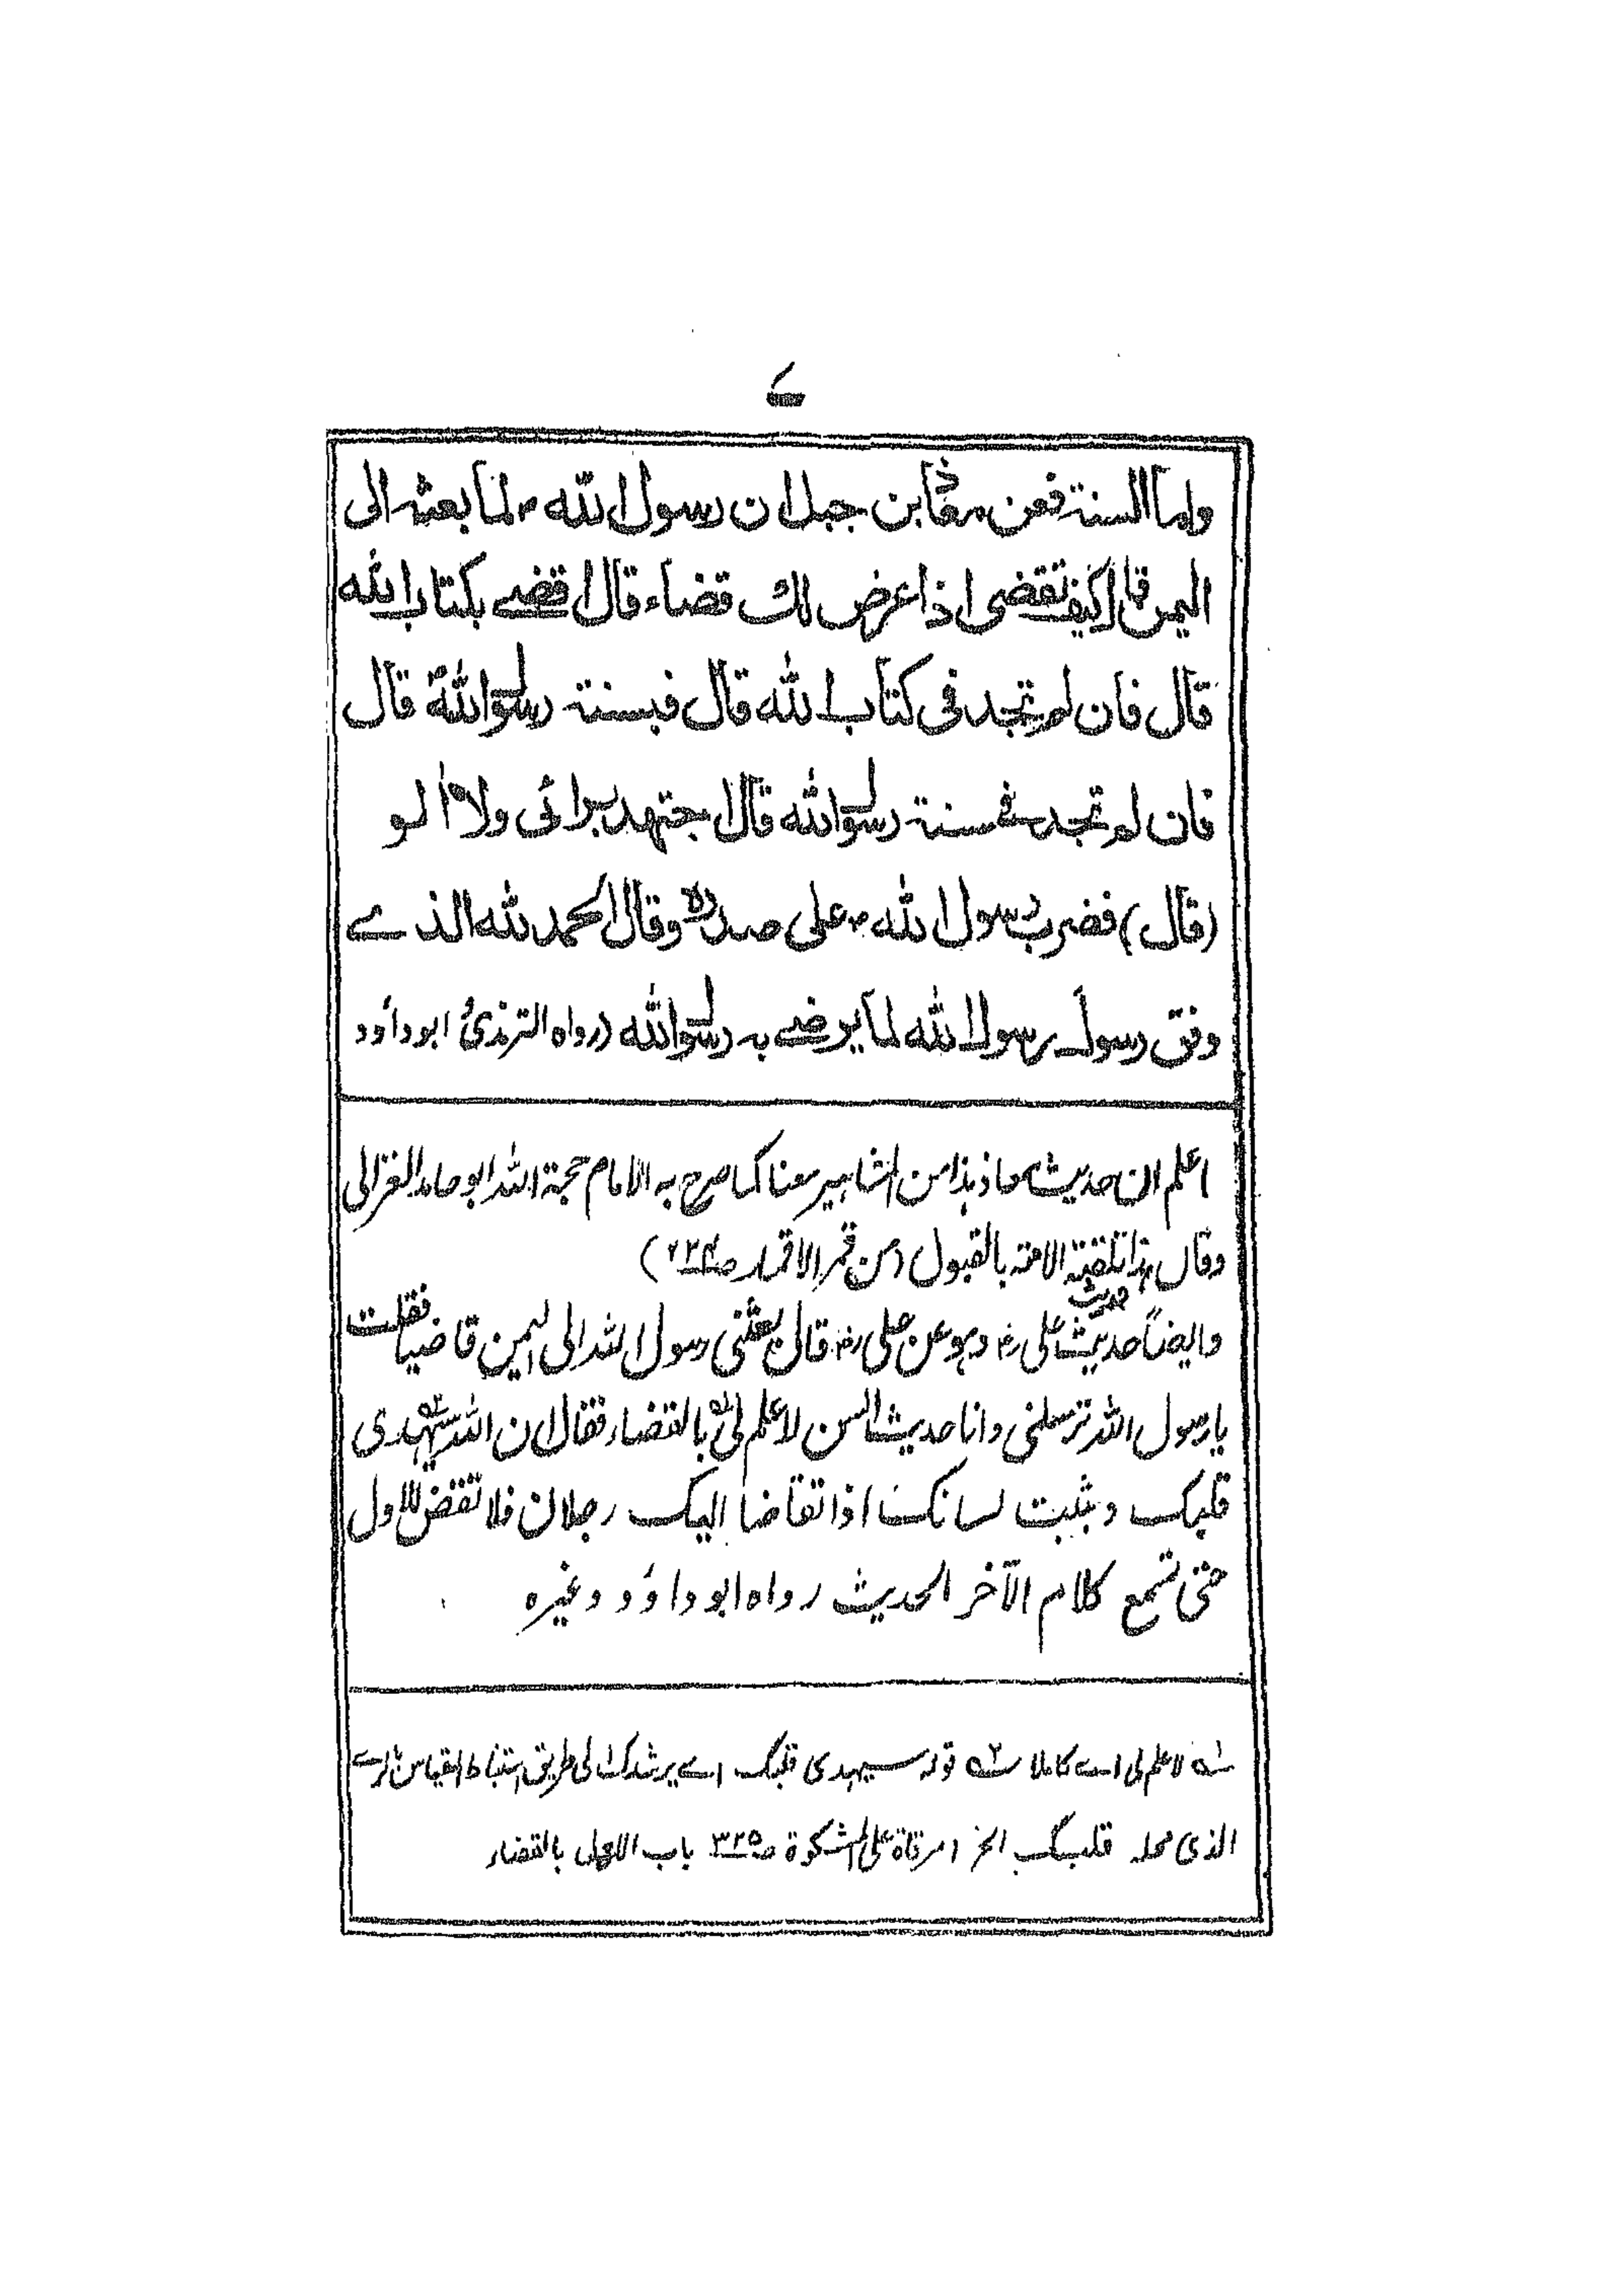 ۷
واما السنة فعن معاذ بن جبل ان رسول الله ؐ لما بعثه الى
اليمن قال كيف تقضى اذا عرض لك قضاء قال اقضے بكتاب الله
قال فان لم تجد فى كتاب الله قال فبسنة رسول اللهؐ قال
فان لم تجد فے سنة رسول الله قال اجتهد برائى ولا آلو
(قال) فضرب رسول الله ؐ على صدره وقال الحمد لله الذے
وفق رسول رسول الله لما يرضے به رسول الله (رواه الترمذىؒ ابوداؤد
اعلم ان حديث معاذ هذا من المشاهير معنا كما صرح به الامام حجة الله ابو حامد الغزالى
وقال هذا حديث تلقته الامة بالقبول (من قمر الاقمار صـ۲۲۴)
وايضاً حديث على رض وهو عن على رض قال بعثنى رسول الله الى اليمن قاضيا فقلت
يا رسول الله ترسلنى وانا حديث السن لا علم لى بالقضاء فقال ان الله سيهدى
قلبك و يثبت لسانك اذا تقاضا اليك رجلان فلا تقض للاول
حتى تسمع كلام الآخر الحديث رواه ابو داؤد وغيره
لا علم لى اے كاملا قوله سيهدى قلبك اے يرشدك الى طريق استنباط القياس
الذى محله قلبك الخ امرقاة على المشكوة صـ۳۲۵ باب العمل بالقضاء